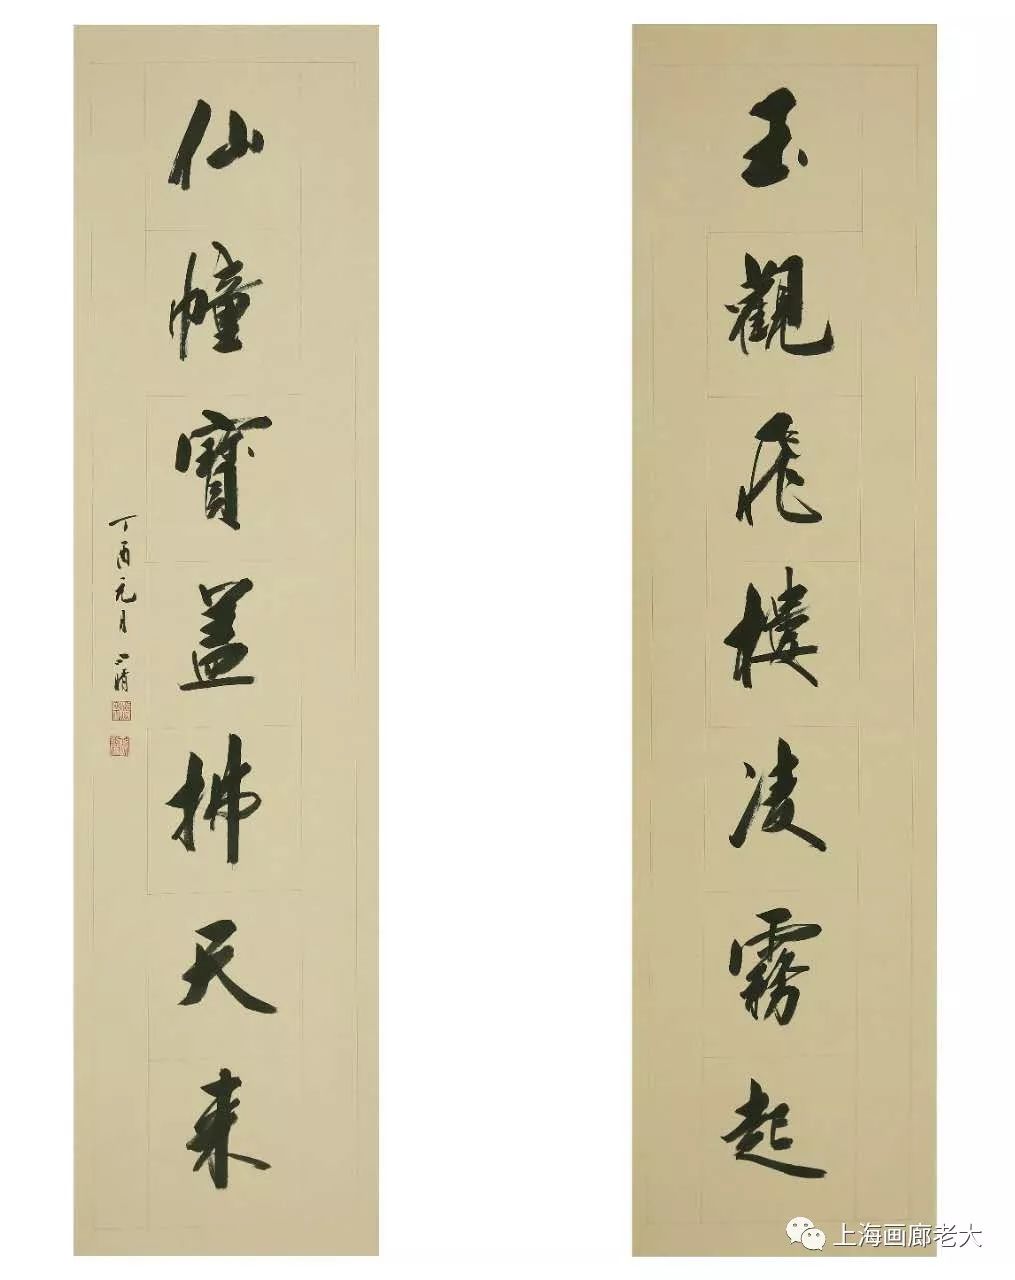 玉觀飛樓凌霧起
仙幢寶盖拂天来
丁酉元月
上海画廊老大